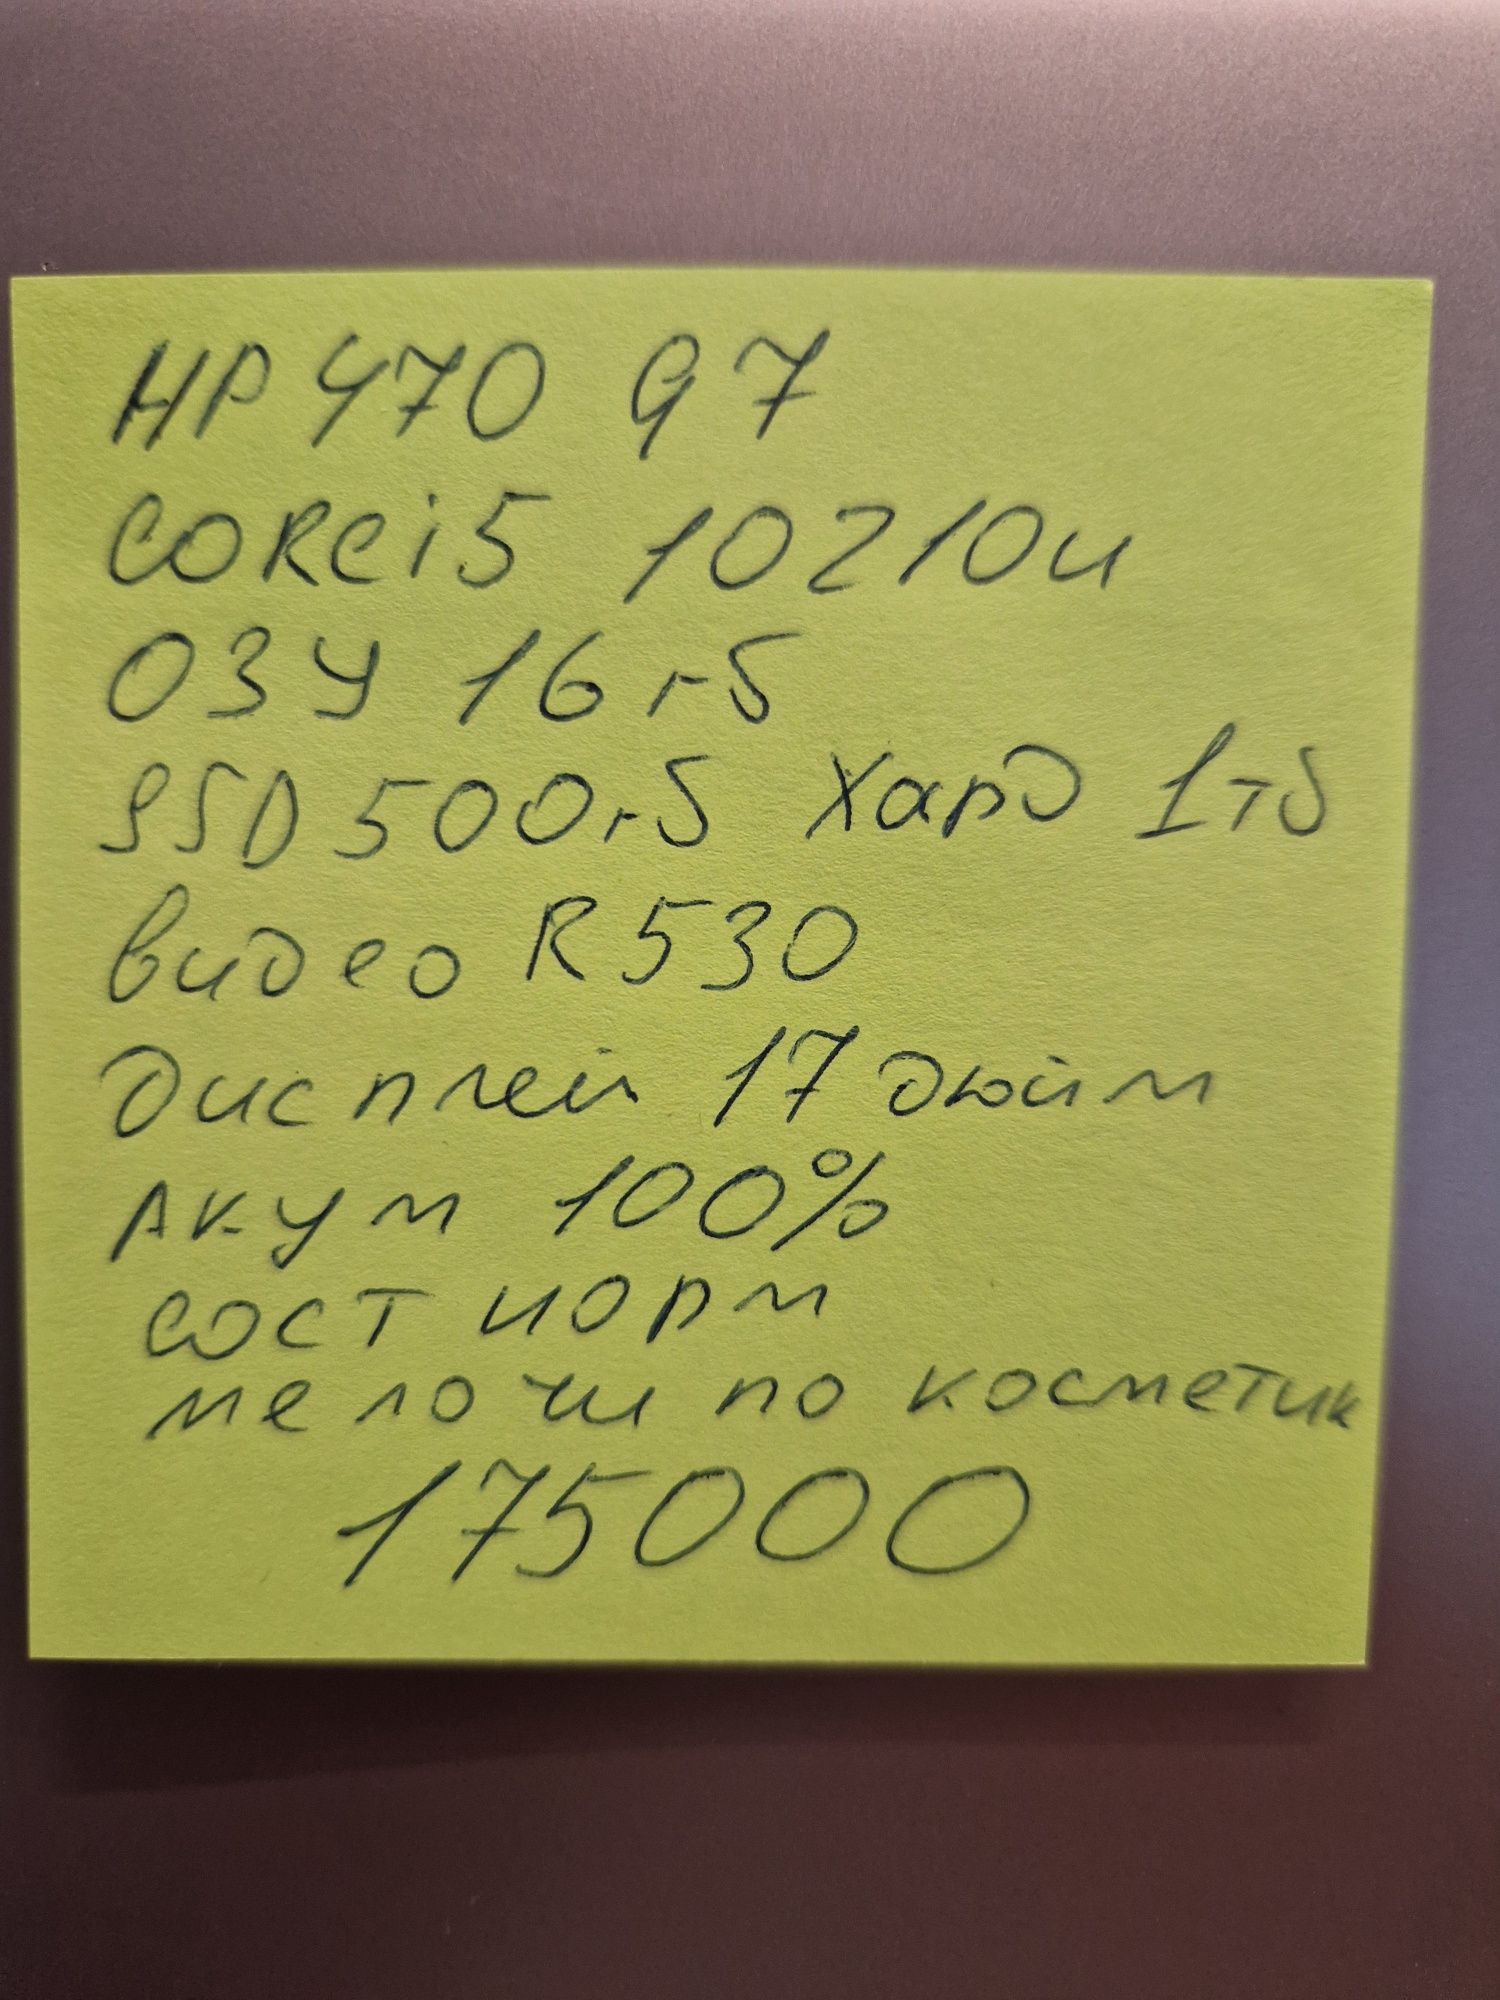 HP 470 G7
Corei5 10210u
ОЗУ 16 гб
SSD 500гб Хард 1тб
видео R530
дисплей 17 дюйм
Акум 100%
сост норм
мелочи по косметик
175000